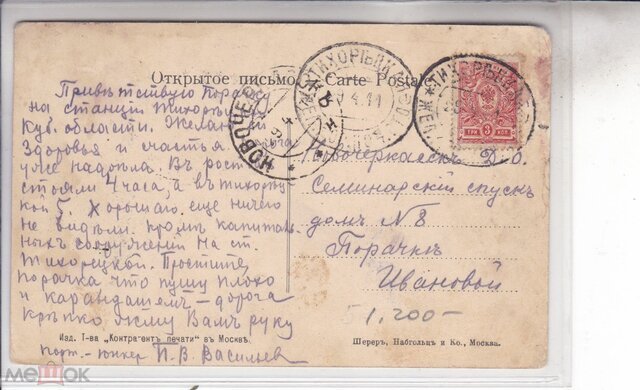 Открытое письмо. — Carte Postale
Привѣтствую Порачка
на станции
Куб. области. Желаю
Здоровья и счастья
уже надоѣла. Въ
стояли 4 часа, а въ
5. Хорошаго еще ничего
не видѣли кромѣ капиталь
ныхъ сооруженій на ст.
Тихорецкой. Простите,
порачка что пишу плохо
и карандашемъ – дорога
Крѣпко жму Вамъ руку
порт.-юнкеръ П. В. Васильев
Новочеркасскъ Д. О.
Семинарскій спускъ
домъ № 8
Порачкѣ
Ивановой
1.200-
Изд. Т-ва „Контрагентъ печати" въ Москвѣ.
Шереръ, Набгольцъ и Ко., Москва.
НОВОЧЕР
4.11
ТРИ 3 КОП
мешок